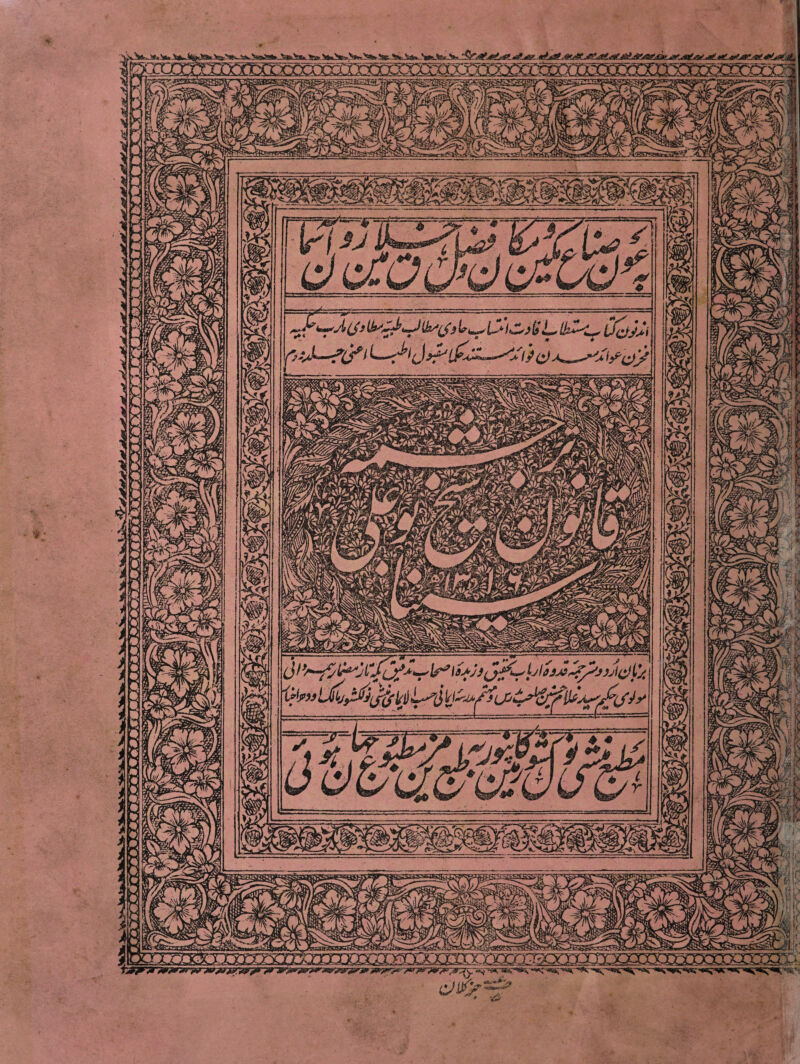 بہ عون صناع مکین و مکان و فضل خلاق زمین و آسمان
اندنون کتاب مستطاب افادت انتساب حاوی مطالب طبیہ مطاوی مآرب حکمیہ
مخزن عوائد معدن فوائد مستند حکما مقبول اطبا اعنی جلد
ترجمہ
قانون شیخ بو علی
سینا
بزبان اُردو مترجمہ قدوۂ ارباب تحقیق و زبدۂ اصحاب تدقیق یکہ تاز مضمار ہمہ دانی
مولوی حکیم سید غلام حسنین صاحب مدرس و مہتمم مدرسہ ایمانی حسب الایمای منشی نولکشور مالک اودھ اخبار
مطبع منشی نول کشور کانپور مین بہ طبع مزین مطبوع جہان ہوئی